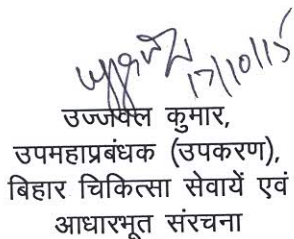 17/10/15
उज्जवल कुमार,
उपमहाप्रबंधक (उपकरण),
बिहार चिकित्सा सेवायें एवं
आधारभूत संरचना